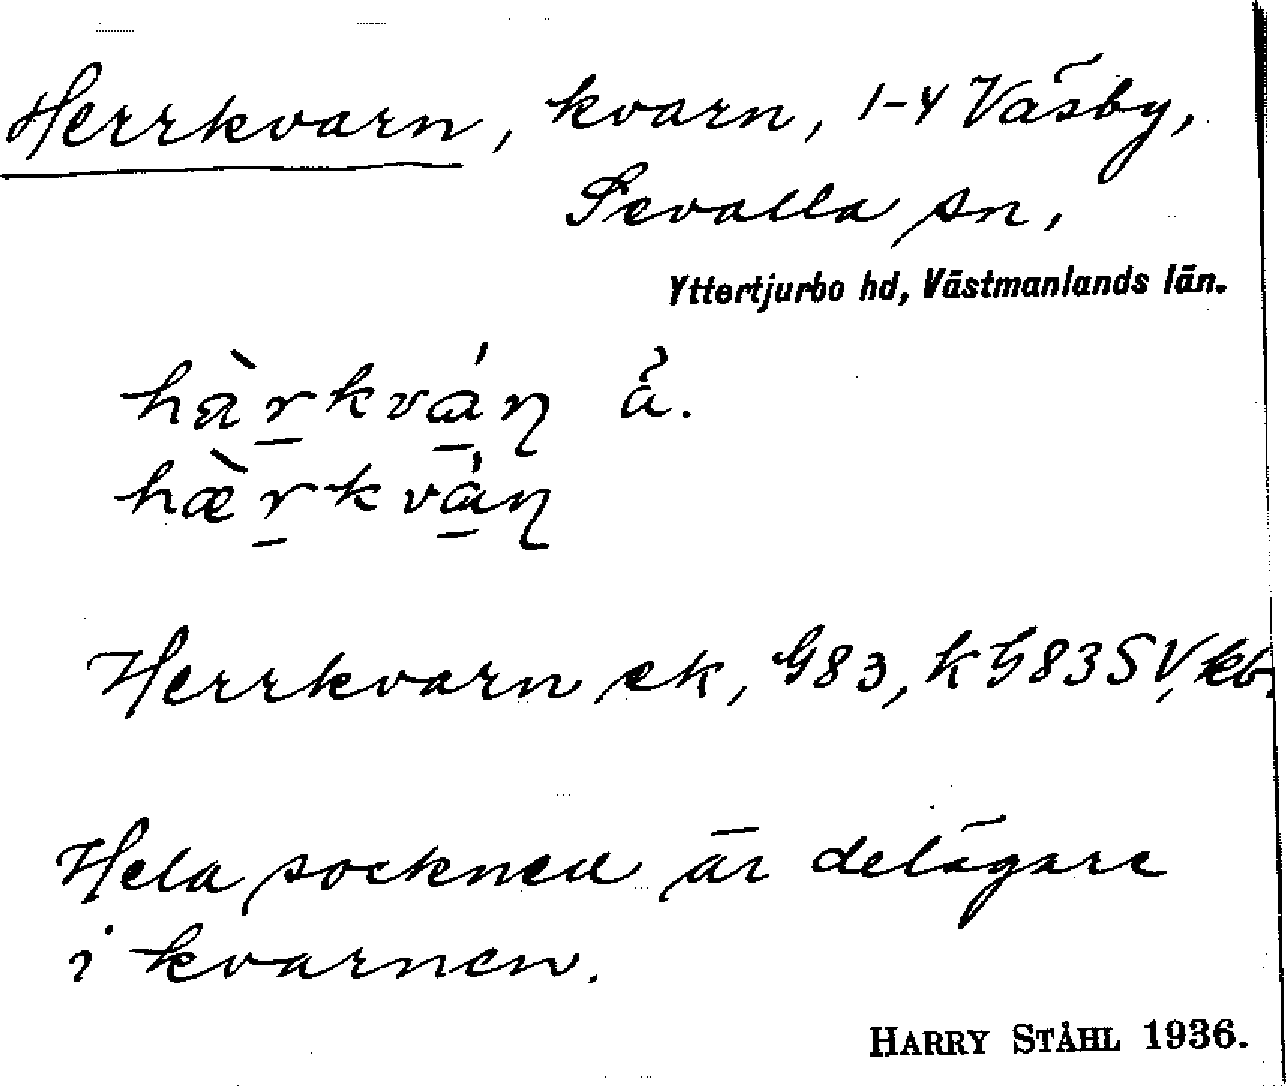 Herrkvarn, kvarn, 1-4 Väsby,
Sevalla sn,
Yttertjurbo hd, Västmanlands län.
hà̀rkváṇ å̉.
hæ̀rkváṇ
Herrkvarn ek, G83, k G83SV, kb.
Hela socknen är delägare
i kvarnen.
HARRY STÅHL 1936.